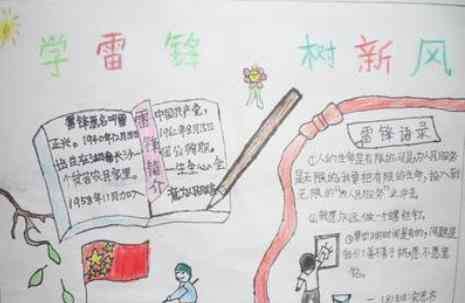 学雷锋 树新风
雷锋原名叫雷
正兴。1940年12月18日
出生在湖南长沙一
个贫苦农民家里。
1957年11月加入
雷锋简介
中国共产党,
1962年8月15日
因公殉职。
一生全心全
意为人民服务
雷锋语录
①人的生命是有限的可是,为人民服务
是无限的,我要把有限的生命,投入到
无限的"为人民服务"之中去。
②我愿永远做一个螺丝钉。
③要
时间是有的,问题是
我们善不善于挤,愿不愿意
钻。